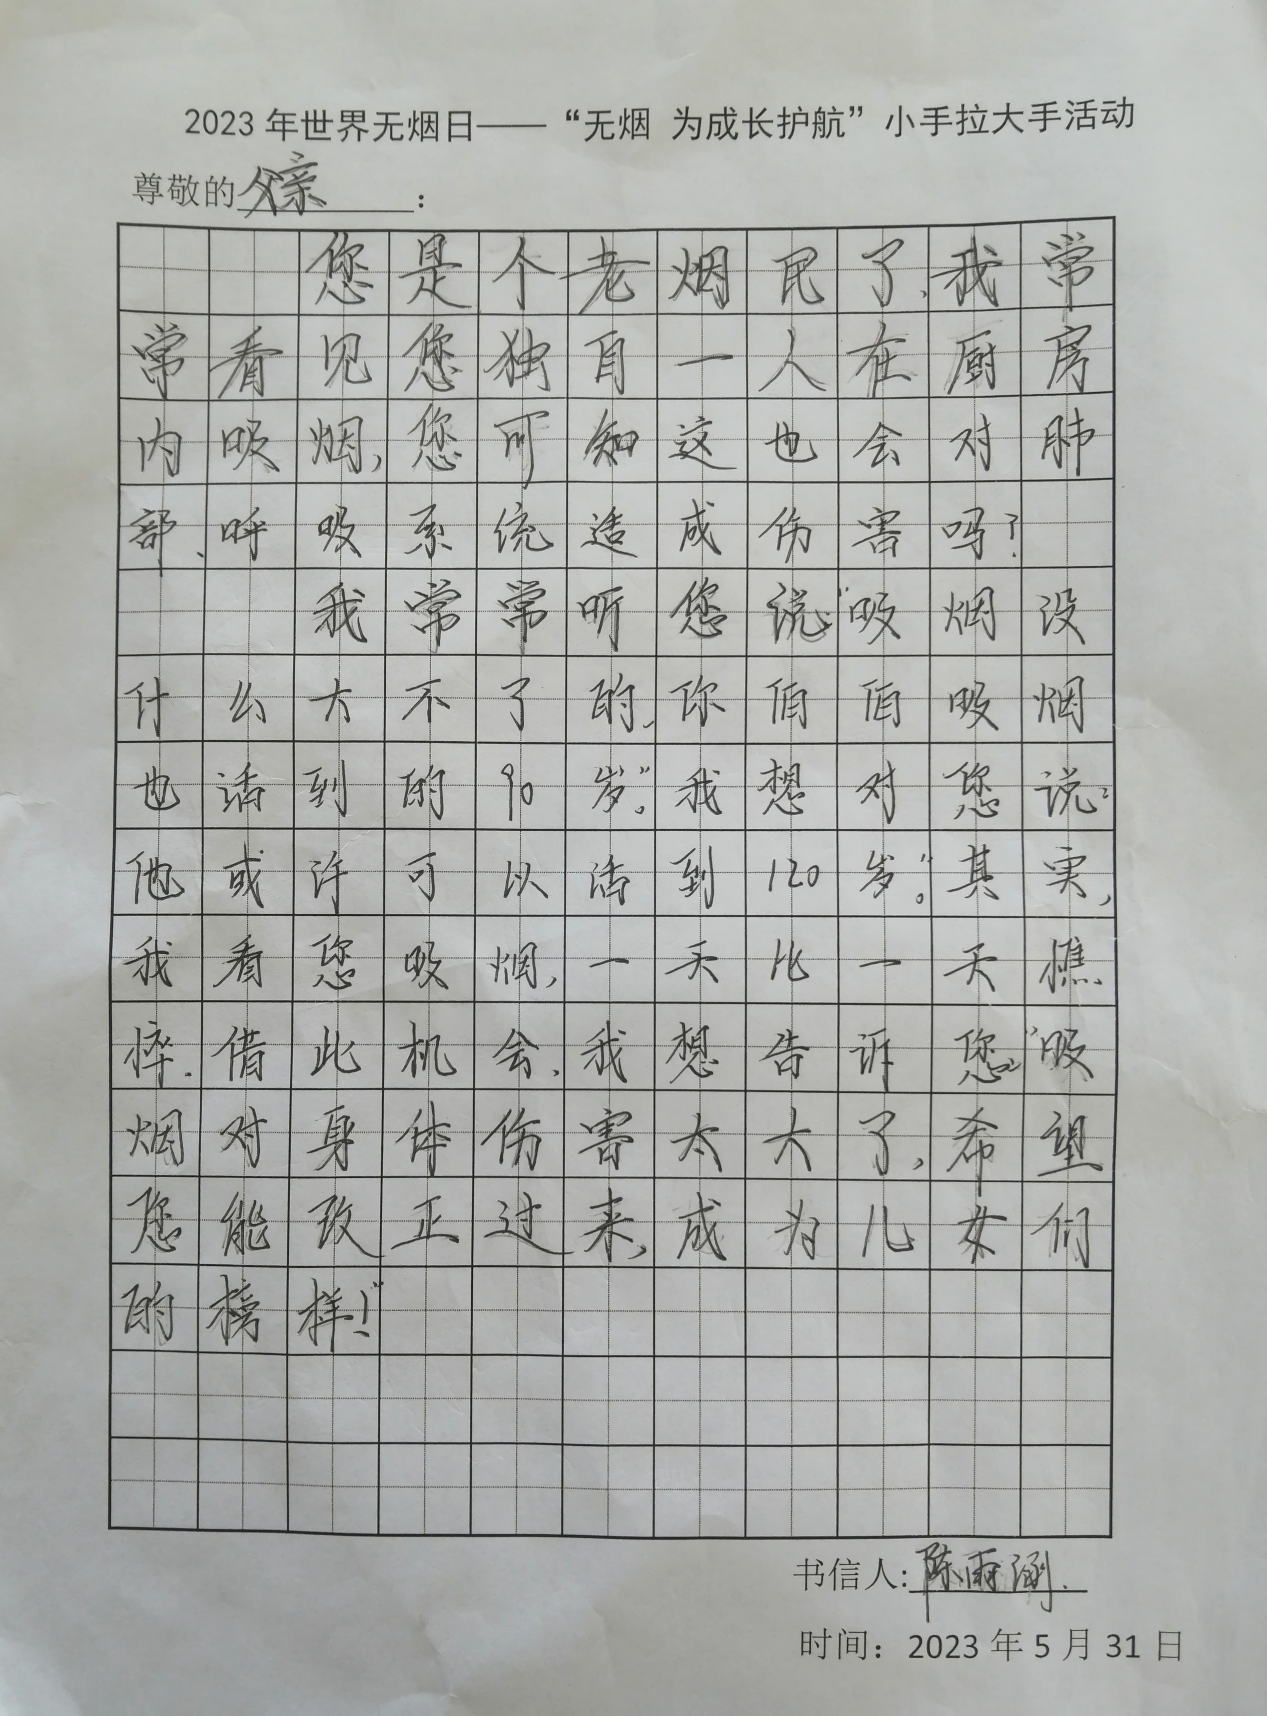 2023年世界无烟日——“无烟 为成长护航”小手拉大手活动
尊敬的父亲：
您是个老烟民了，我常
常看见您独自一人在厨房
内吸烟，您可知这也会对肺
部、呼吸系统造成伤害吗？
我常常听您说：“吸烟没
什么大不了的，你伯伯吸烟
也活到的90岁”。我想对您说：
他或许可以活到120岁”。其实，
我看您吸烟，一天比一天憔
悴.借此机会，我想告诉您：“吸
烟对身体伤害太大了，希望
您能改正过来，成为儿女们
的榜样！”
书信人:陈雨涵.
时间：2023年5月31日